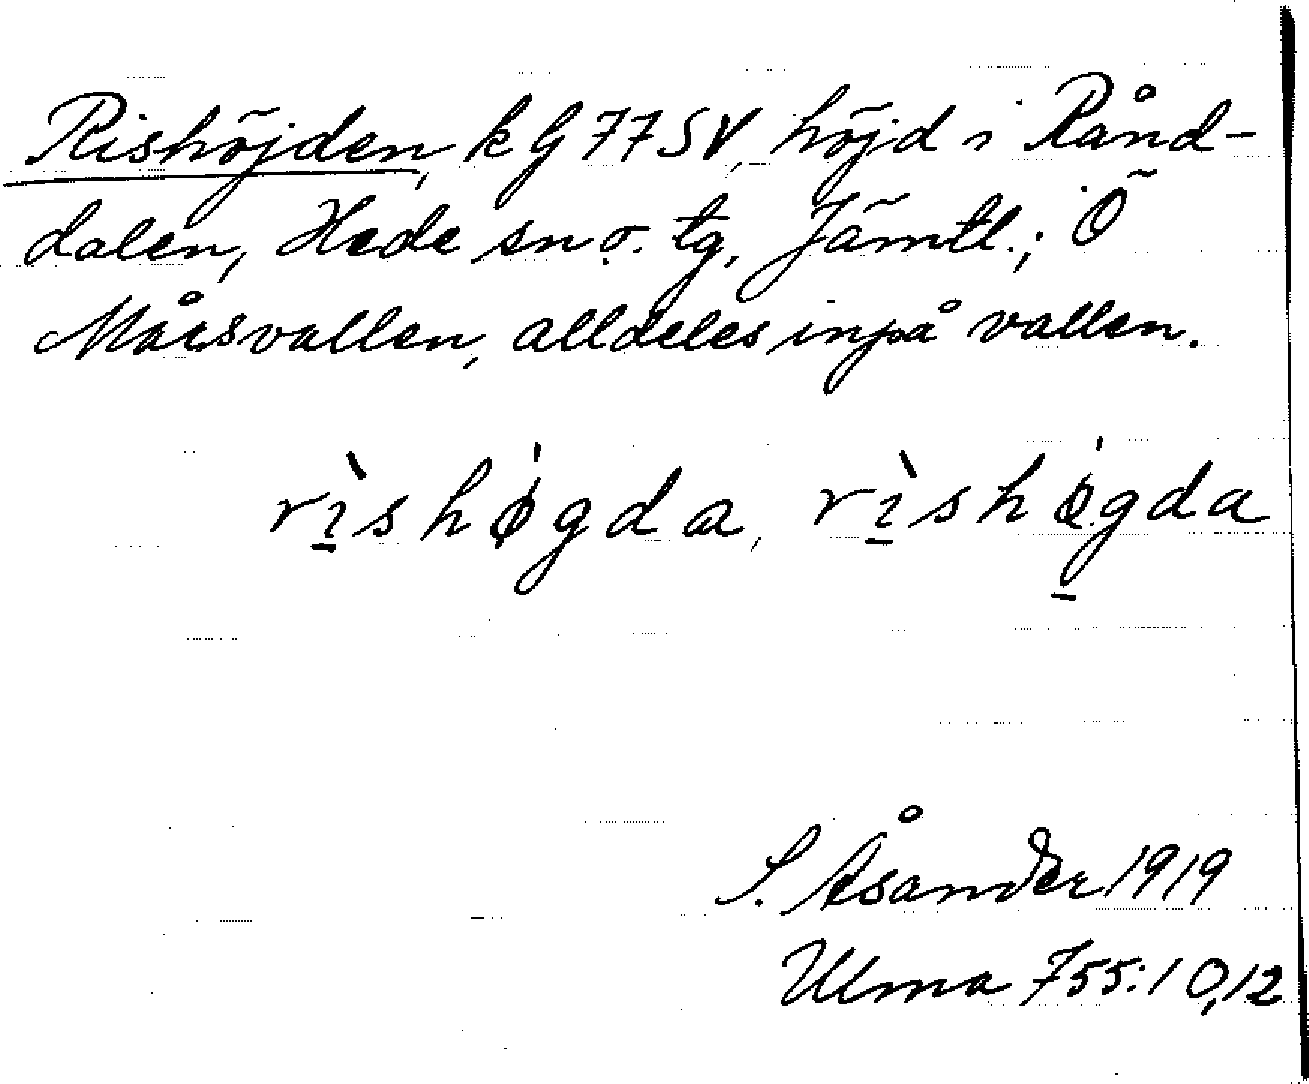 Rishöjden, k G 77 SV, höjd i Rånd-
dalen, Hede sn o. tg, Jämtl.; Ö
Mårsvallen, alldeles inpå vallen.
rı̱̀shǿgda, rı̱̀shǿ̱gda
S. Åsander 1919
Ulma 755:10,12